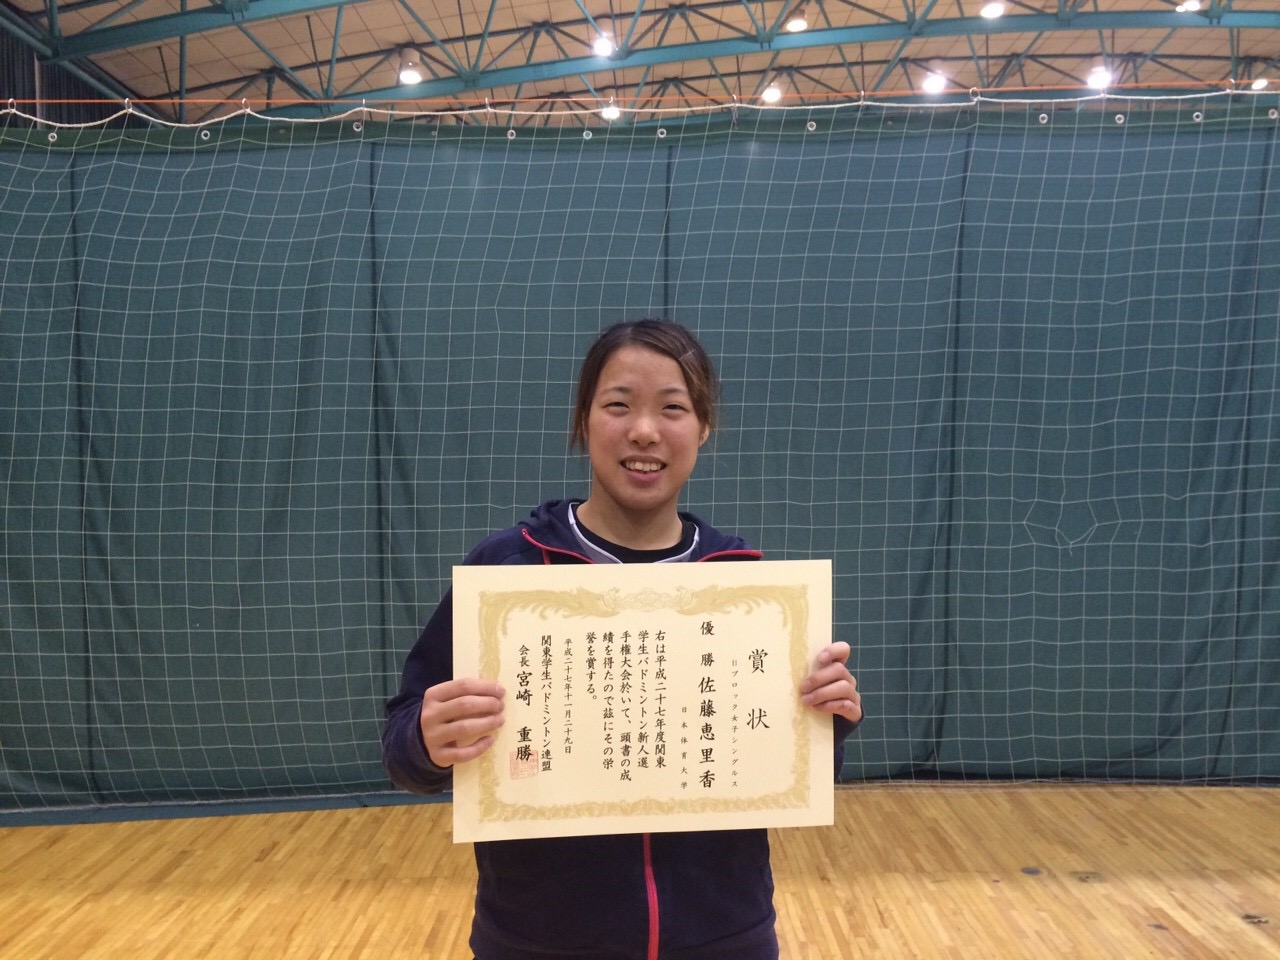 賞状
日ブロック女子シングルス
優勝 佐藤恵里香
日本体育大学
右は平成二十七年度関東
学生バドミントン新人選
手権大会於いて、頭書の成
績を得たので茲にその栄
誉を賞する。
平成二十七年十一月二十九日
関東学生バドミントン連盟
会長 宮崎 重勝